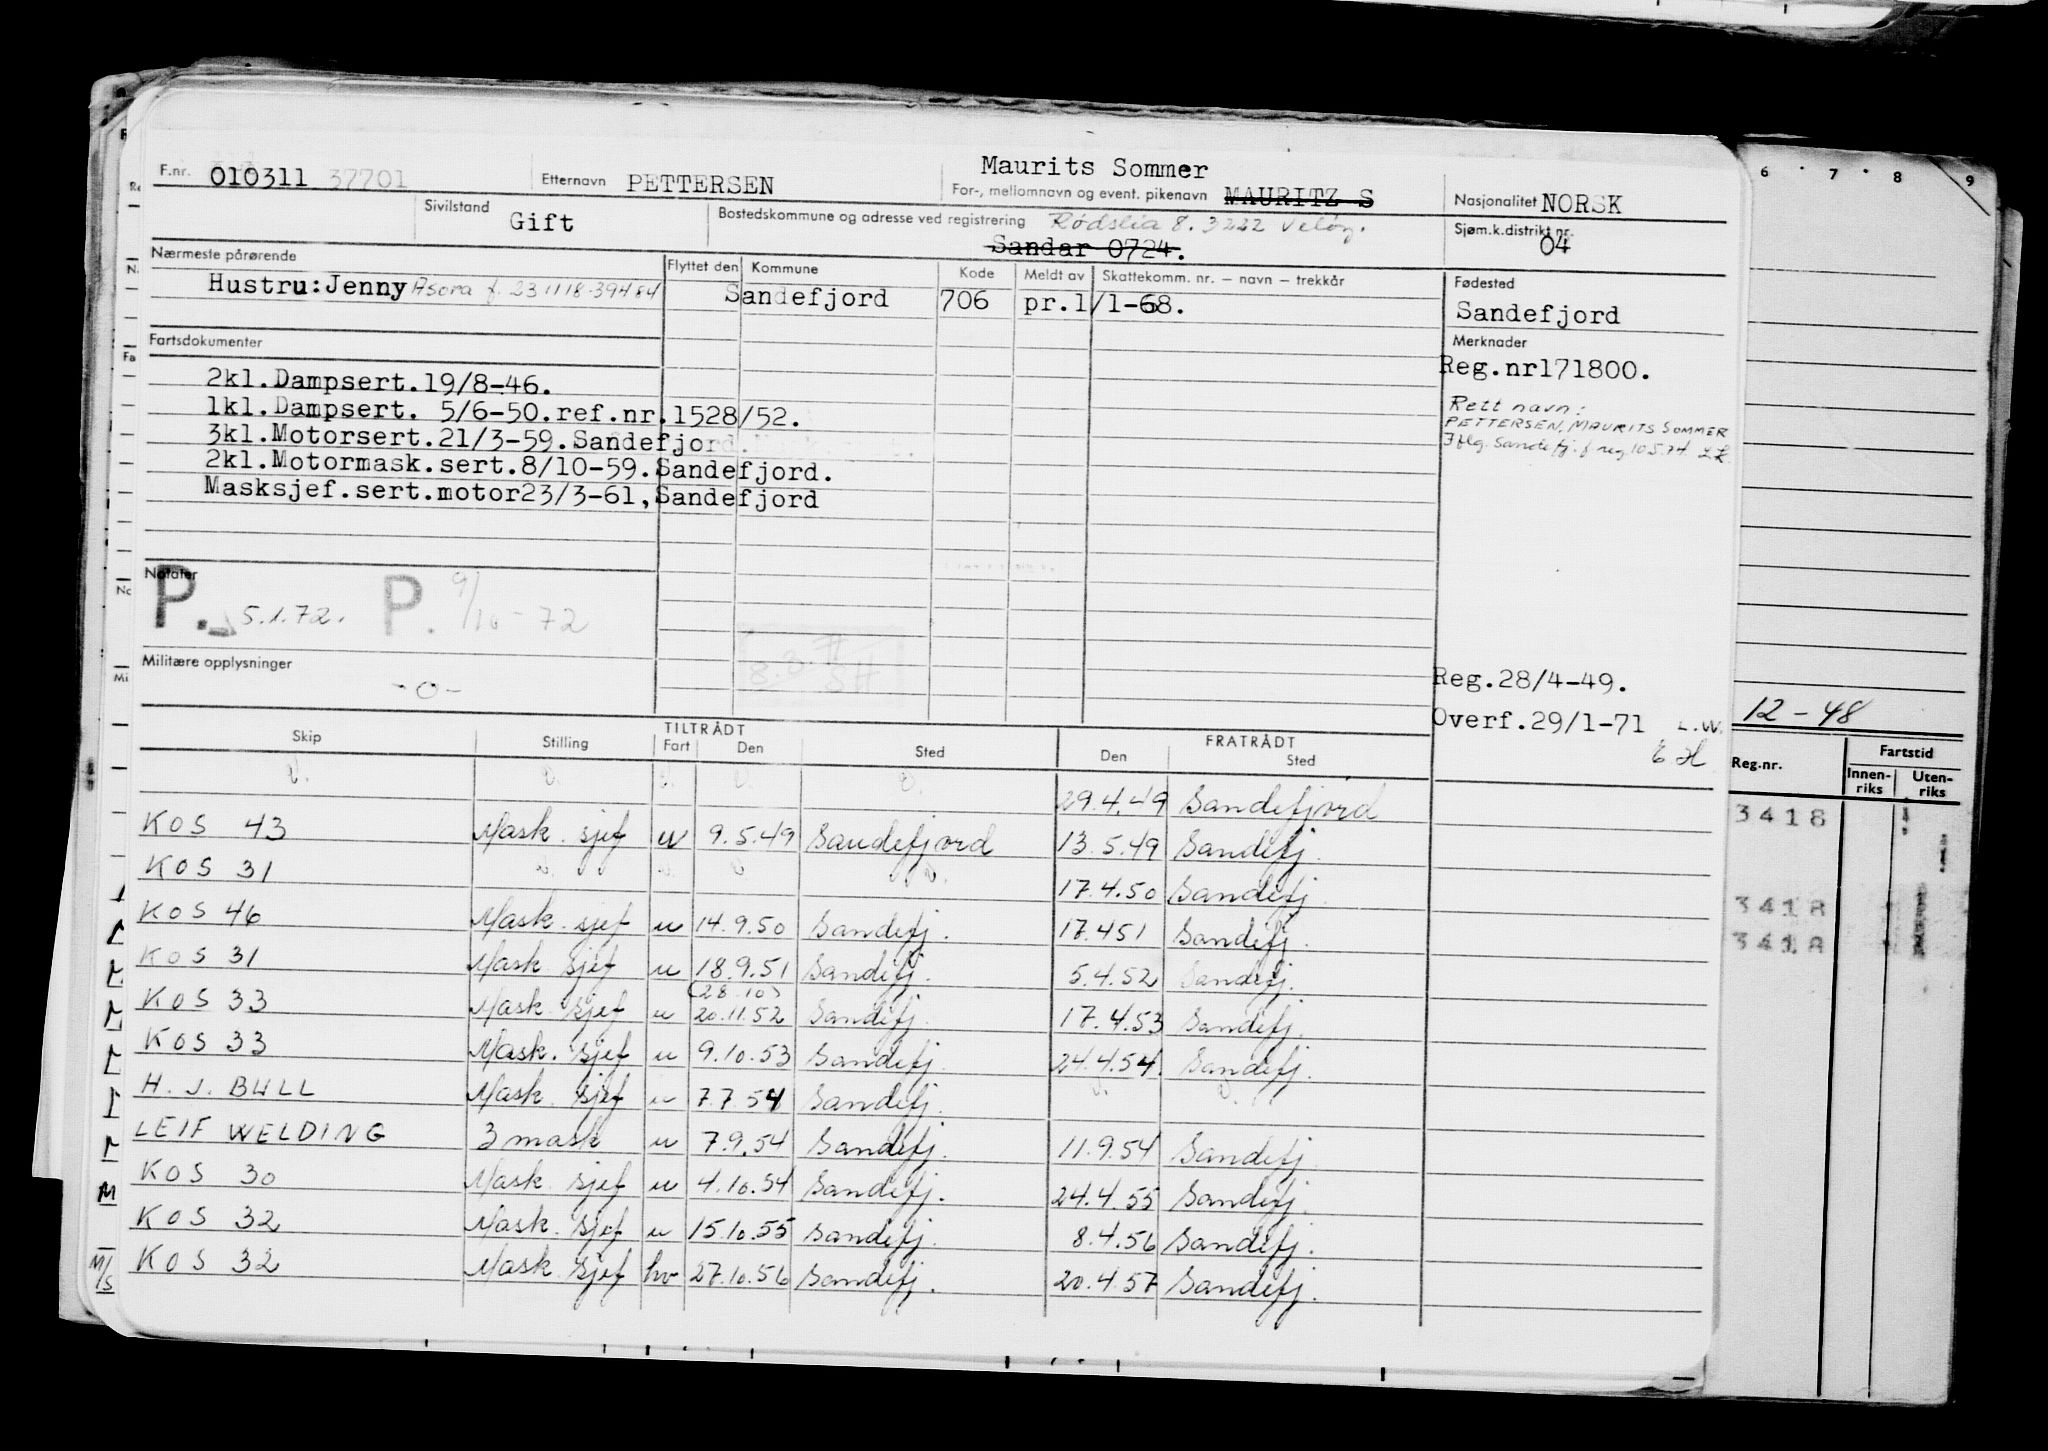 Maurits Sommer
F.nr. 010311 37701 Etternavn PETTERSEN For-, mellomnavn og event. pikenavn MAURITZ S Nasjonalitet NORSK
Sivilstand Gift Bostedskommune og adresse ved registrering Rødslia 8. 3222 Veløy. Sandar 0724. Sjøm.k.distrikt nr. 04
Nærmeste pårørende Flyttet den Kommune Kode Meldt av Skattekomm. nr. – navn – trekkår Fødested
Hustru: Jenny Asora f. 231118-39484 Sandefjord 706 pr.1/1-68. Sandefjord
Fartsdokumenter Merknader
Reg.nr171800.
2kl.Dampsert.19/8-46.
1kl.Dampsert. 5/6-50.ref.nr.1528/52.
3kl.Motorsert.21/3-59.Sandefjord.
2kl.Motormask.sert.8/10-59.Sandefjord.
Masksjef.sert.motor23/3-61,Sandefjord
Rett navn:
PETTERSEN, MAURITS SOMMER
Iflg. Sandefj. f reg 10.5.74
Notater
P. 5.1.72. P. 9/10-72
Militære opplysninger
-0-
Reg.28/4-49.
Overf.29/1-71 L.W.
E H
12-48
TILTRÅDT FRATRÅDT
Skip Stilling Fart Den Sted Den Sted
Reg.nr. Fartstid
Innen-riks Uten-riks
29.4.49 Sandefjord
KOS 43 Mask. sjef u 9.5.49 Sandefjord 13.5.49 Sandefj.
KOS 31 17.4.50 Sandefj.
KOS 46 Mask. sjef u 14.9.50 Sandefj. 17.4.51 Sandefj.
KOS 31 Mask. sjef u 18.9.51 Sandefj. 5.4.52 Sandefj.
KOS 33 Mask. sjef u (28.10) 20.11.52 Sandefj. 17.4.53 Sandefj.
KOS 33 Mask. sjef u 9.10.53 Sandefj. 24.4.54. Sandefj.
H. J. BULL Mask. sjef u 7.7.54 Sandefj.
LEIF WELDING 3 mask u 7.9.54 Sandefj. 11.9.54 Sandefj.
KOS 30 Mask. sjef u 4.10.54 Sandefj. 24.4.55 Sandefj.
KOS 32 Mask. sjef u 15.10.55 Sandefj. 8.4.56 Sandefj.
KOS 32 Mask. sjef hv 27.10.56 Sandefj. 20.4.57 Sandefj.
3418
3418
3418
6 7 8 9